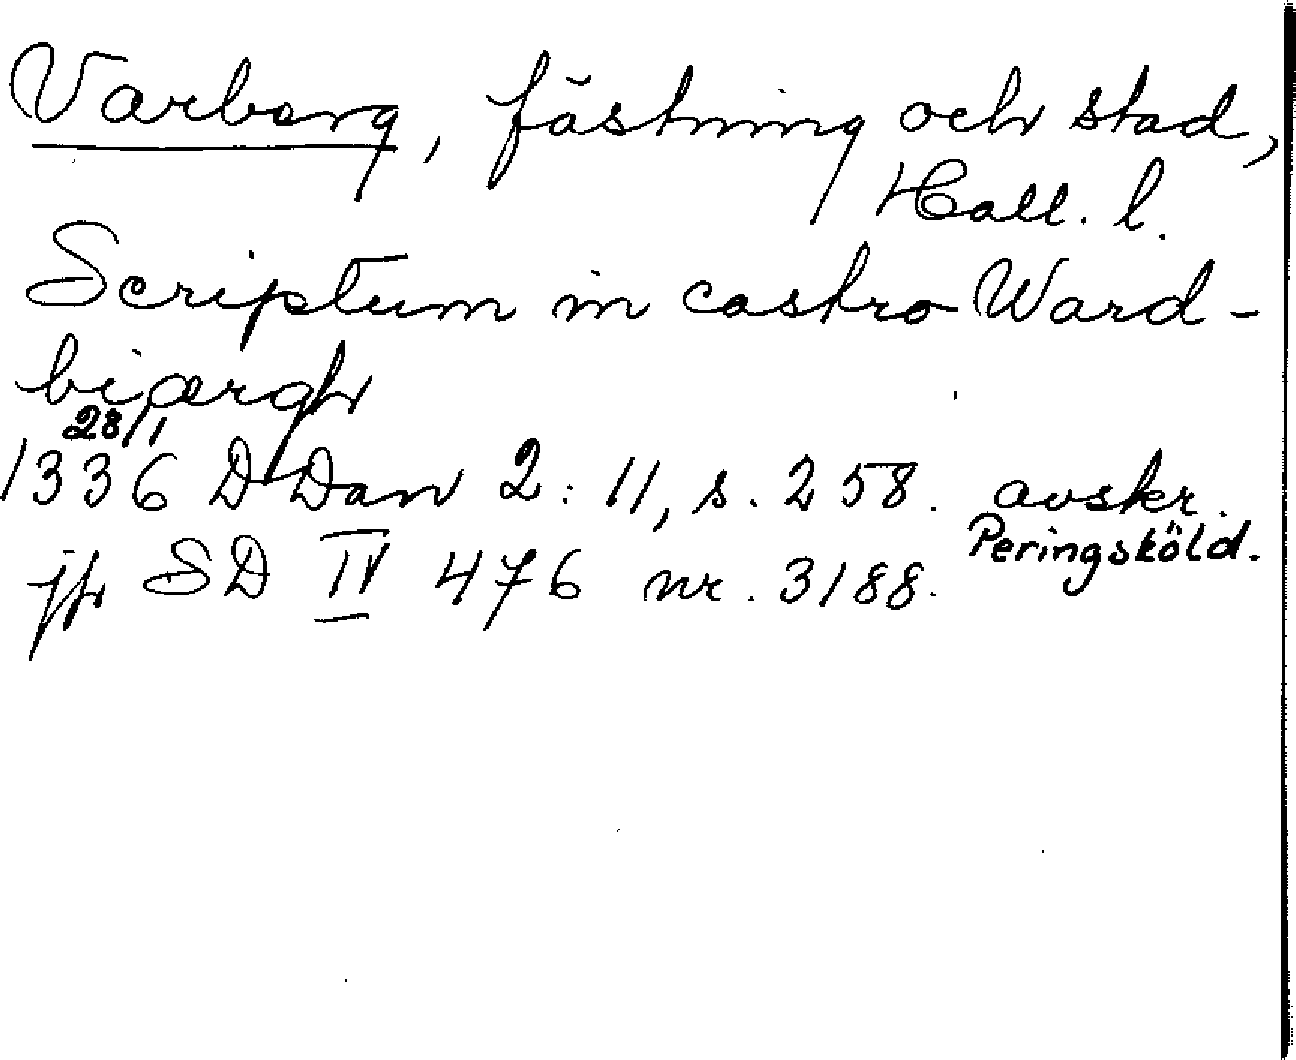 Varberg, fästning och stad,
Hall. l.
Scriptum in castro Ward-
biærgh
28/1
1336 D Dan 2: 11, s. 258. avskr.
Peringsköld.
jfr SD IV 476 nr. 3188.